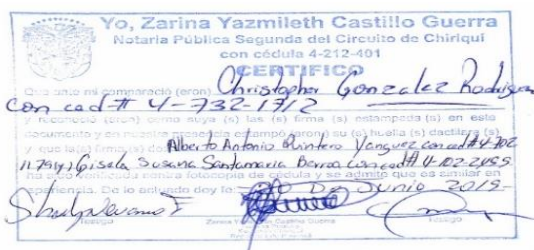 Yo, Zarina Yazmileth Castillo Guerra
Notaria Pública Segunda del Circuito de Chiriquí
con cédula 4-212-401
CERTIFICO
Que ante mi compareció (eron) Christopher Gonzalez Rodriguez
con ced # 4-732-1712
y reconoció (eron) como suya (s) las (s) firma (s) estampada (s) en este
documento y en nuestra presencia estampó (aron) su (s) huella (s) dactilar (s)
y que la(s) firma (s) Alberto Antonio Quintero Yanguez con ced # 4-702
y Gisela Susana Santamaria Berroa con ced # 4-102-2455
ha sido verificada contra fotocopia de cédula y se admitió que es similar en
apariencia. De lo actuado doy fe De Junio 2019
Testigo Zarina Y. Castillo Guerra Testigo